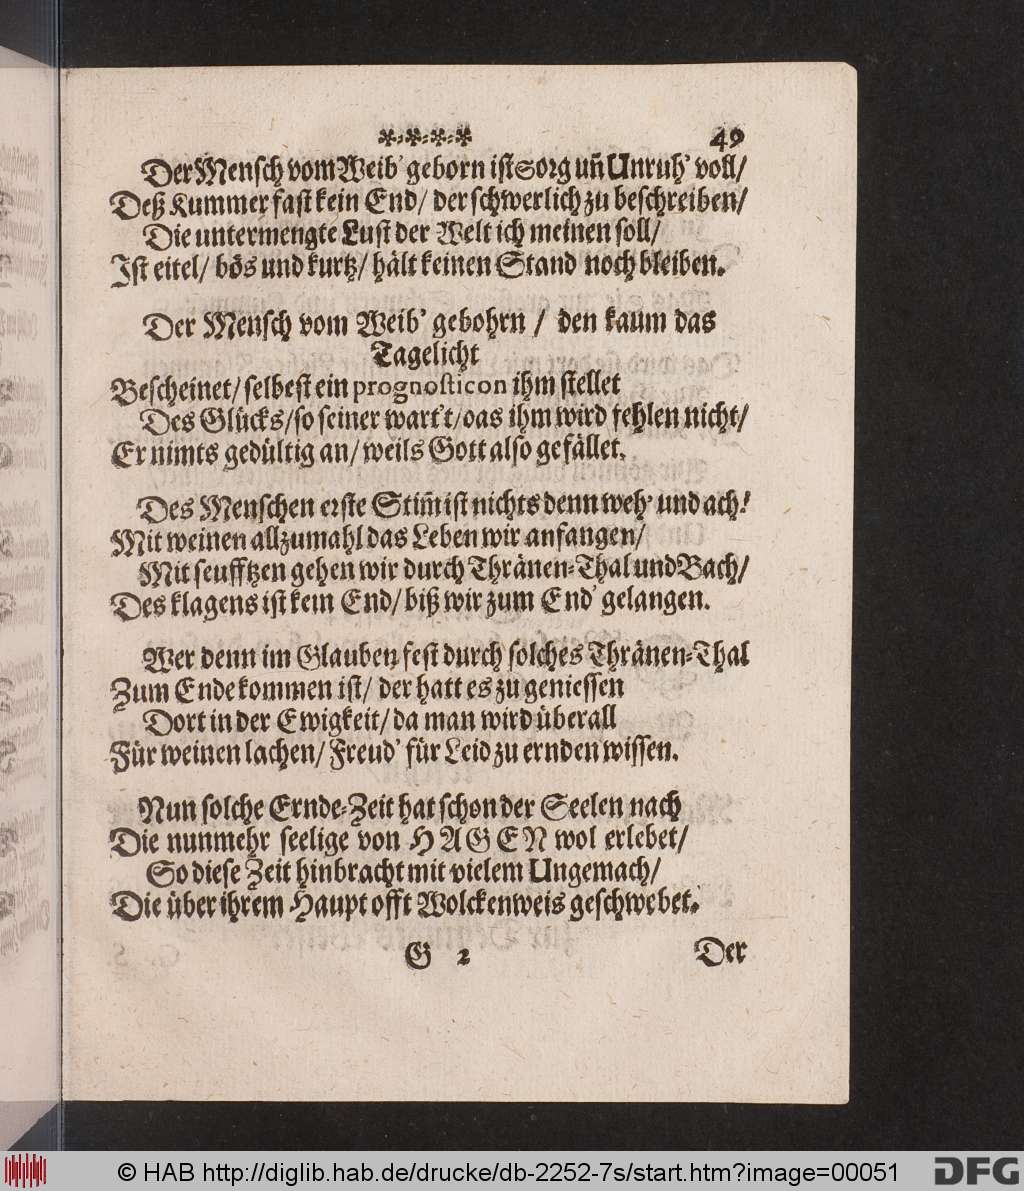 ✲⸗✲⸗✲⸗✲ 49
Der Mensch vom Weib' geborn ist Sorg uñ Unruh' voll/
Deß Kummer fast kein End/ der schwerlich zu beschreiben/
Die untermengte Lust der Welt ich meinen soll/
Ist eitel/ bös und kurtz/ hält keinen Stand noch bleiben.
Der Mensch vom Weib' gebohrn / den kaum das
Tagelicht
Bescheinet/ selbest ein prognosticon ihm stellet
Des Glücks/ so seiner wart't/ das ihm wird fehlen nicht/
Er nimts gedültig an/ weils Gott also gefället.
Des Menschen erste Stim̃ ist nichts denn weh' und ach!
Mit weinen allzumahl das Leben wir anfangen/
Mit seufftzen gehen wir durch Thränen⸗Thal und Bach/
Des klagens ist kein End/ biß wir zum End' gelangen.
Wer denn im Glauben fest durch solches Thränen⸗Thal
Zum Ende kommen ist/ der hatt es zu geniessen
Dort in der Ewigkeit/ da man wird überall
Für weinen lachen/ Freud' für Leid zu ernden wissen.
Nun solche Ernde⸗Zeit hat schon der Seelen nach
Die nunmehr seelige von HAGEN wol erlebet/
So diese Zeit hinbracht mit vielem Ungemach/
Die über ihrem Haupt offt Wolckenweis geschwebet.
G 2 Der
© HAB http://diglib.hab.de/drucke/db-2252-7s/start.htm?image=00051 DFG